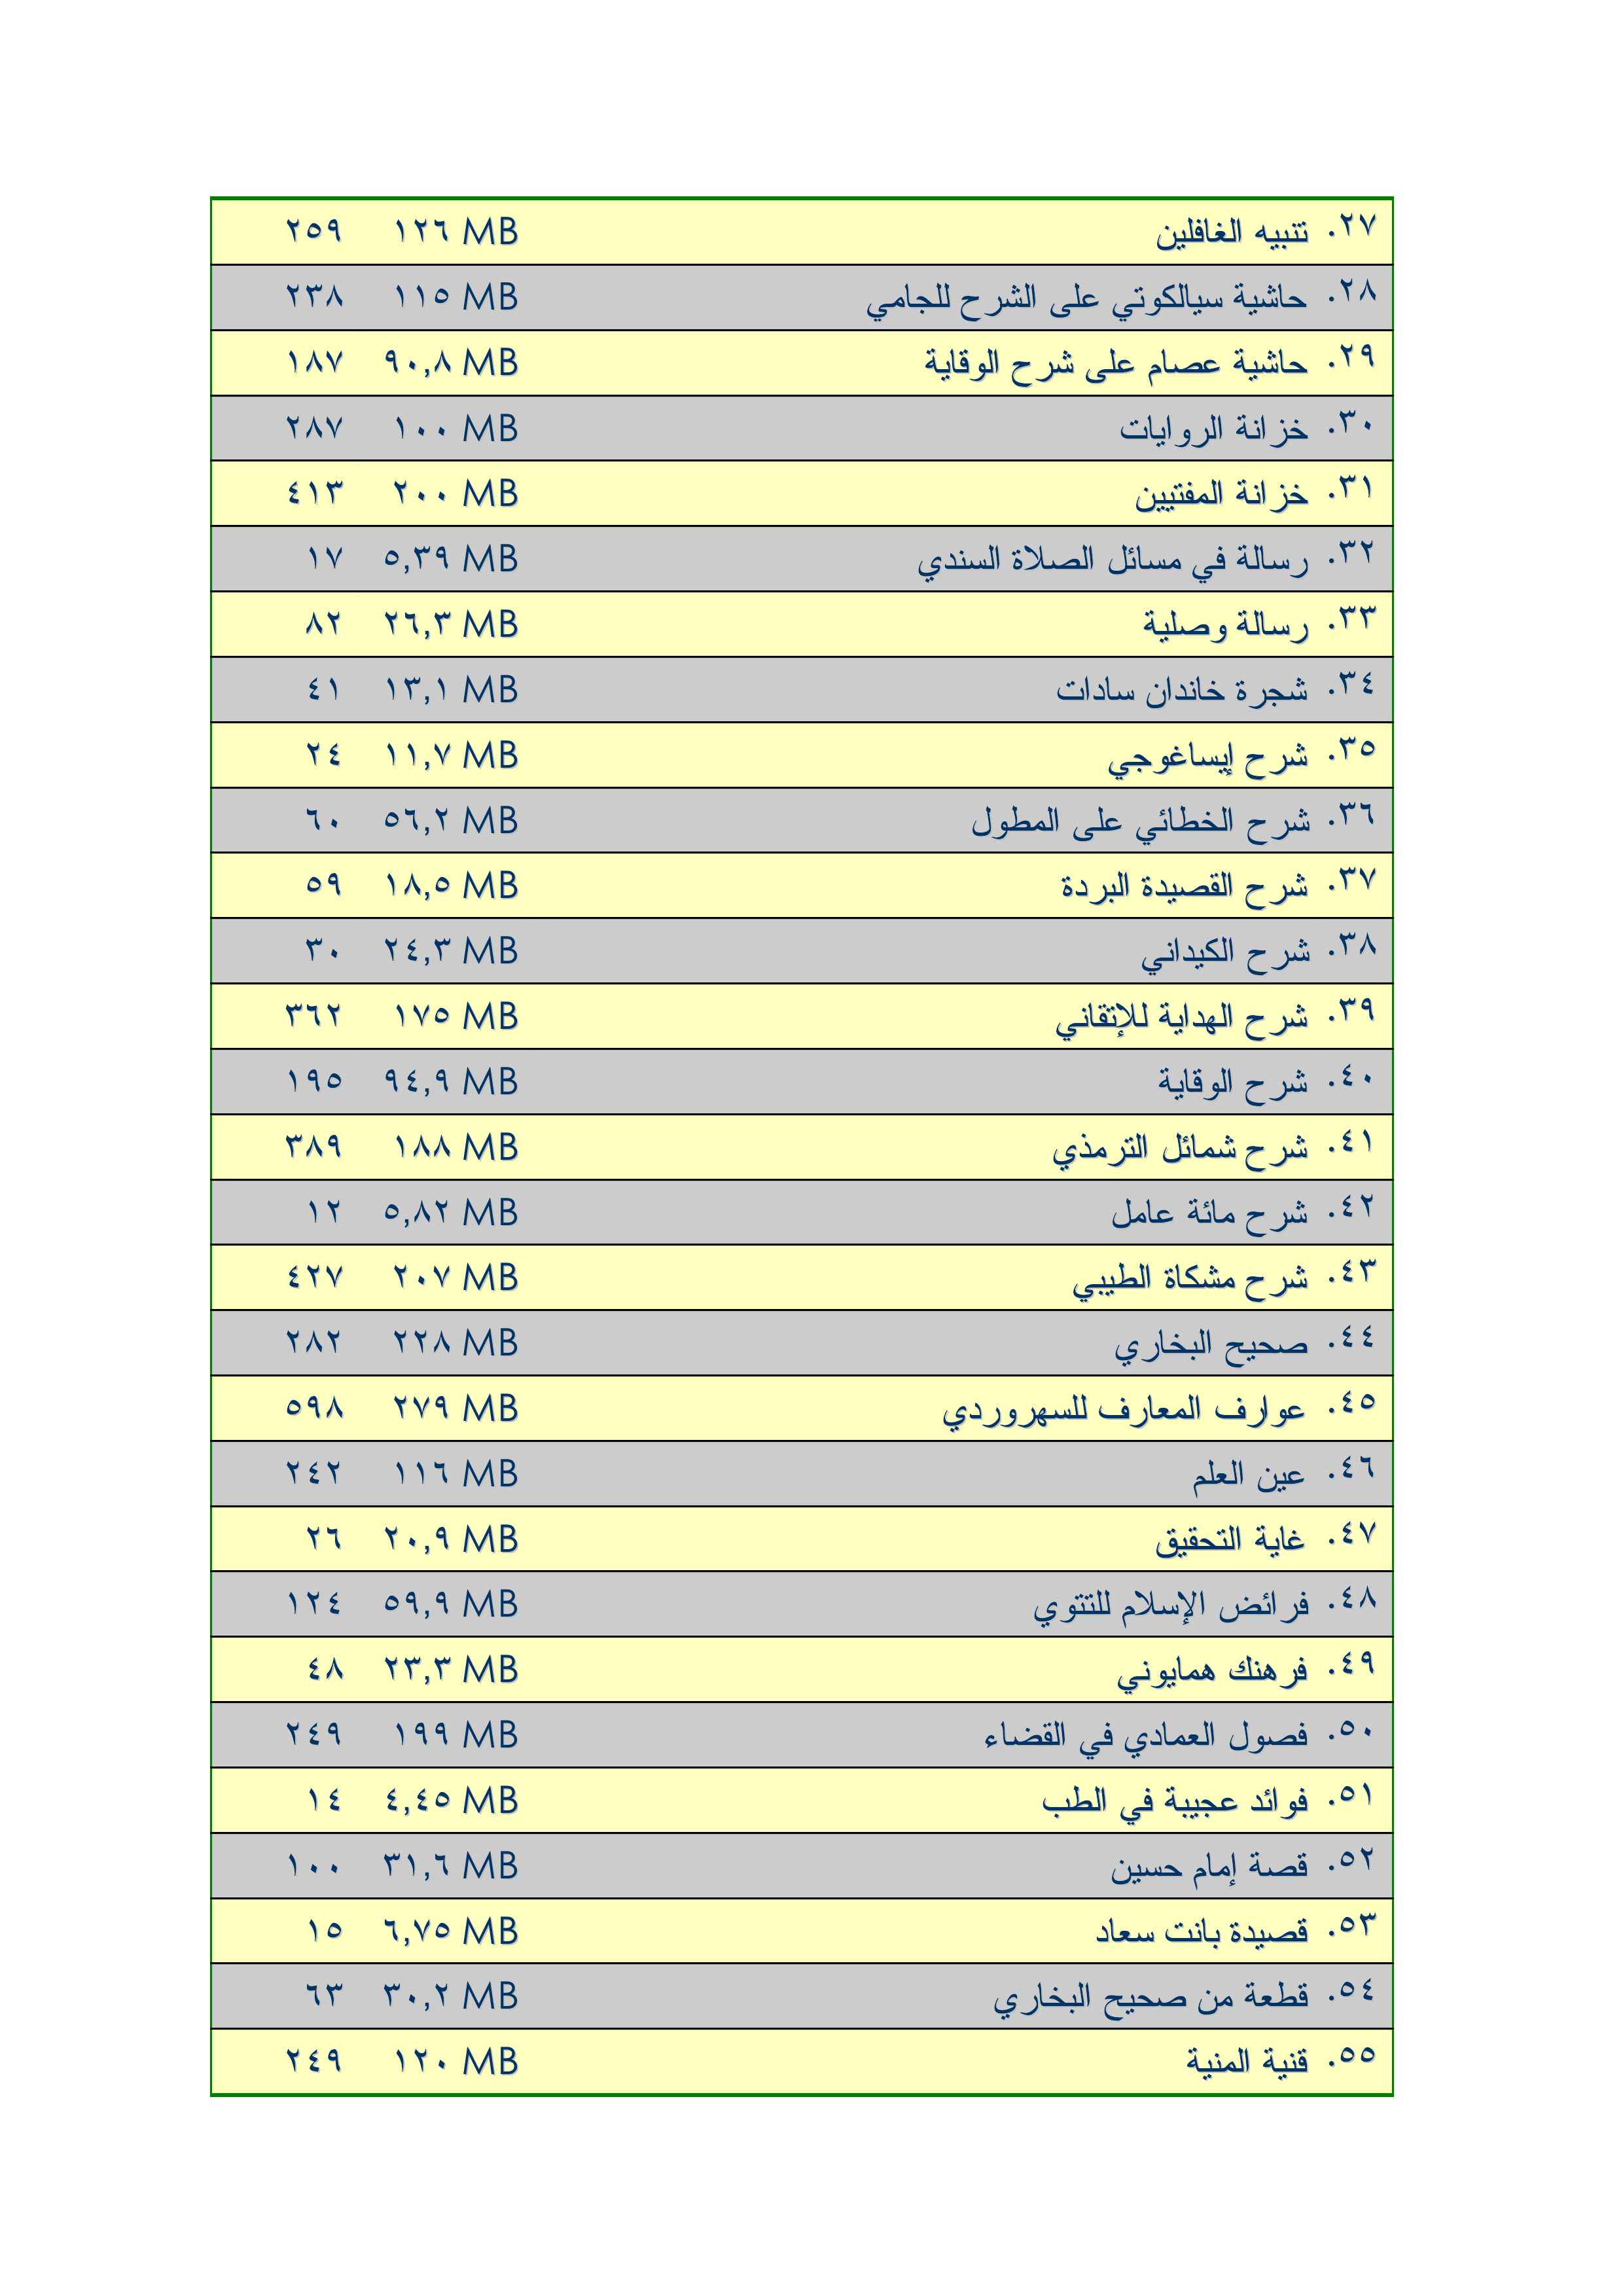 ٢٧. تنبيه الغافلين ١٢٦ MB ٢٥٩
٢٨. حاشية سيالكوتي على الشرح للجامي ١١٥ MB ٢٣٨
٢٩. حاشية عصام على شرح الوقاية ٩٠,٨ MB ١٨٧
٣٠. خزانة الروايات ١٠٠ MB ٢٨٧
٣١. خزانة المفتيين ٢٠٠ MB ٤١٣
٣٢. رسالة في مسائل الصلاة السندي ٥,٣٩ MB ١٧
٣٣. رسالة وصلية ٢٦,٣ MB ٨٢
٣٤. شجرة خاندان سادات ١٣,١ MB ٤١
٣٥. شرح إيساغوجي ١١,٧ MB ٢٤
٣٦. شرح الخطائي على المطول ٥٦,٢ MB ٦٠
٣٧. شرح القصيدة البردة ١٨,٥ MB ٥٩
٣٨. شرح الكيداني ٢٤,٣ MB ٣٠
٣٩. شرح الهداية للإتقاني ١٧٥ MB ٣٦٢
٤٠. شرح الوقاية ٩٤,٩ MB ١٩٥
٤١. شرح شمائل الترمذي ١٨٨ MB ٣٨٩
٤٢. شرح مائة عامل ٥,٨٢ MB ١٢
٤٣. شرح مشكاة الطيبي ٢٠٧ MB ٤٢٧
٤٤. صحيح البخاري ٢٢٨ MB ٢٨٢
٤٥. عوارف المعارف للسهروردي ٢٧٩ MB ٥٩٨
٤٦. عين العلم ١١٦ MB ٢٤٢
٤٧. غاية التحقيق ٢٠,٩ MB ٢٦
٤٨. فرائض الإسلام للتتوي ٥٩,٩ MB ١٢٤
٤٩. فرهنك همايوني ٢٣,٣ MB ٤٨
٥٠. فصول العمادي في القضاء ١٩٩ MB ٢٤٩
٥١. فوائد عجيبة في الطب ٤,٤٥ MB ١٤
٥٢. قصة إمام حسين ٣١,٦ MB ١٠٠
٥٣. قصيدة بانت سعاد ٦,٧٥ MB ١٥
٥٤. قطعة من صحيح البخاري ٣٠,٢ MB ٦٣
٥٥. قنية المنية ١٢٠ MB ٢٤٩